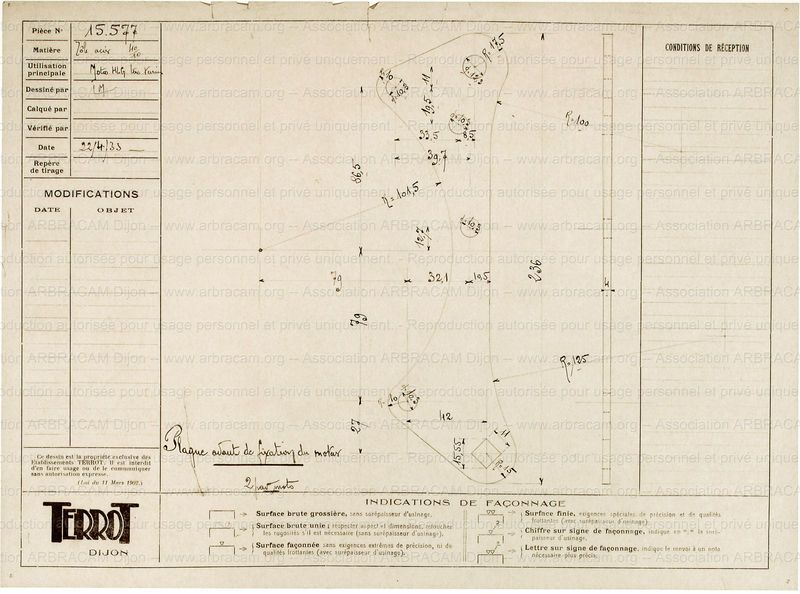 Pièce N° 15.577
Matière Tôle acier
Utilisation principale
Dessiné par
Calqué par
Vérifié par
Date 22/4/33
Repère de tirage
MODIFICATIONS
DATE OBJET
CONDITIONS DE RÉCEPTION
R=17,5
11
19,5
33,5
39,7
R=100
66,5
R=101,5
12,7
79
32,1
19,5
236
4
79
R=125
27
42
11
15,55
Plaque avant de fixation du moteur
2 par moto
Ce dessin est la propriété exclusive des
Établissements TERROT. Il est interdit
d'en faire usage ou de le communiquer
sans autorisation expresse.
(Loi du 11 Mars 1902.)
TERROT
DIJON
INDICATIONS DE FAÇONNAGE
Surface brute grossière, sans surépaisseur d'usinage.
Surface brute unie; respecter aspect et dimensions, retoucher
les rugosités s'il est nécessaire (sans surépaisseur d'usinage).
Surface façonnée sans exigences extrêmes de précision, ni de
qualités frottantes (avec surépaisseur d'usinage).
Surface finie, exigences spéciales de précision et de qualités
frottantes (avec surépaisseur d'usinage).
Chiffre sur signe de façonnage, indique en m/m la surépaisseur d'usinage.
Lettre sur signe de façonnage, indique le renvoi à un nota
nécessaire plus précis.
Reproduction autorisée pour usage personnel et privé uniquement. - www.arbracam.org -- Association ARBRACAM Dijon